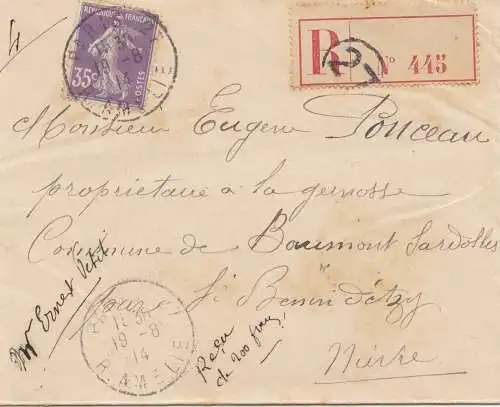 RÉPUBLIQUE FRANÇAISE
35c
POSTES
R No 445
Monsieur Eugène Ponceau
propriétaire à la
Commune de Beaumont Sardolles
par St Benin d'Azy
Nièvre
Mr Ernest Petit
PARIS
19 -8
14
R. AMELIE
Reçu
de 200 francs